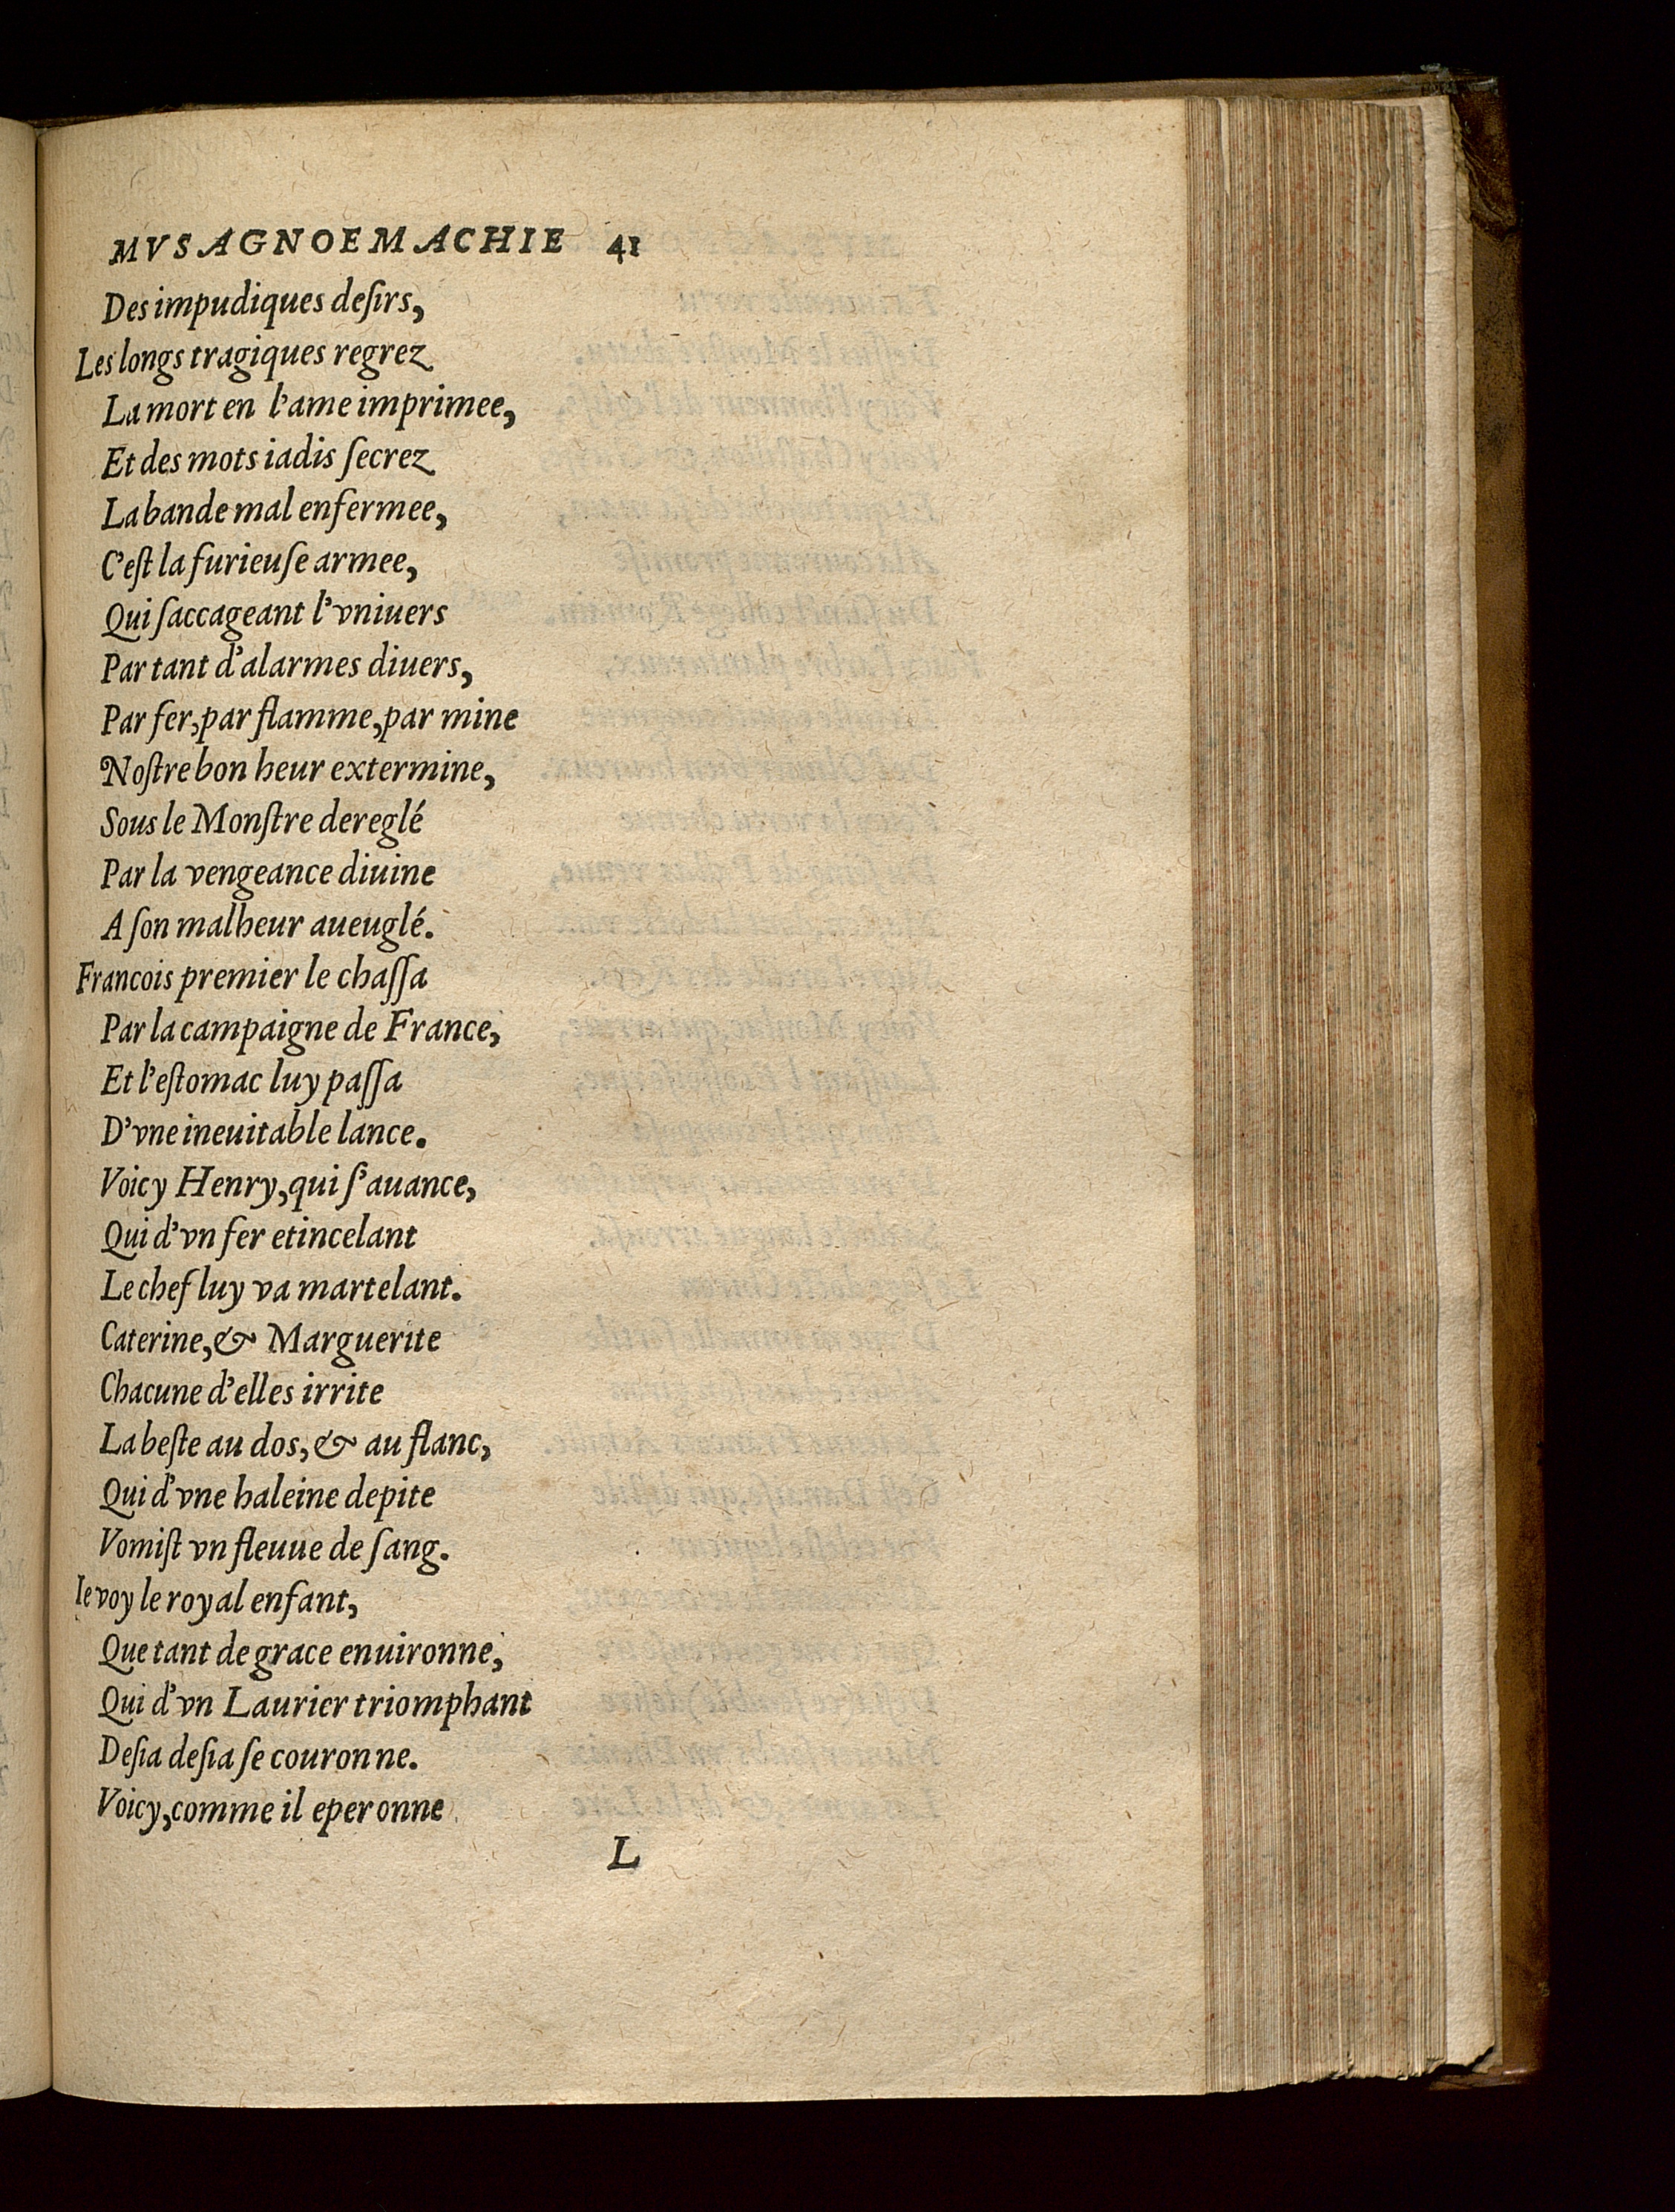 MVSAGNOEMACHIE 41
Des impudiques deſirs,
Les longs tragiques regrez
La mort en l'ame imprimee,
Et des mots iadis ſecrez
La bande mal enfermee,
C'eſt la furieuſe armee,
Qui ſaccageant l'vniuers
Par tant d'alarmes diuers,
Par fer, par flamme, par mine
Noſtre bon heur extermine,
Sous le Monſtre dereglé
Par la vengeance diuine
A ſon malheur aueuglé.
Francois premier le chaſſa
Par la campaigne de France,
Et l'eſtomac luy paſſa
D'vne ineuitable lance.
Voicy Henry, qui ſ'auance,
Qui d'vn fer etincelant
Le chef luy va martelant.
Caterine, & Marguerite
Chacune d'elles irrite
La beſte au dos, & au flanc,
Qui d'vne haleine depite
Vomiſt vn fleuue de ſang.
Ie voy le royal enfant,
Que tant de grace enuironne,
Qui d'vn Laurier triomphant
Deſia deſia ſe couronne.
Voicy, comme il eperonne
L